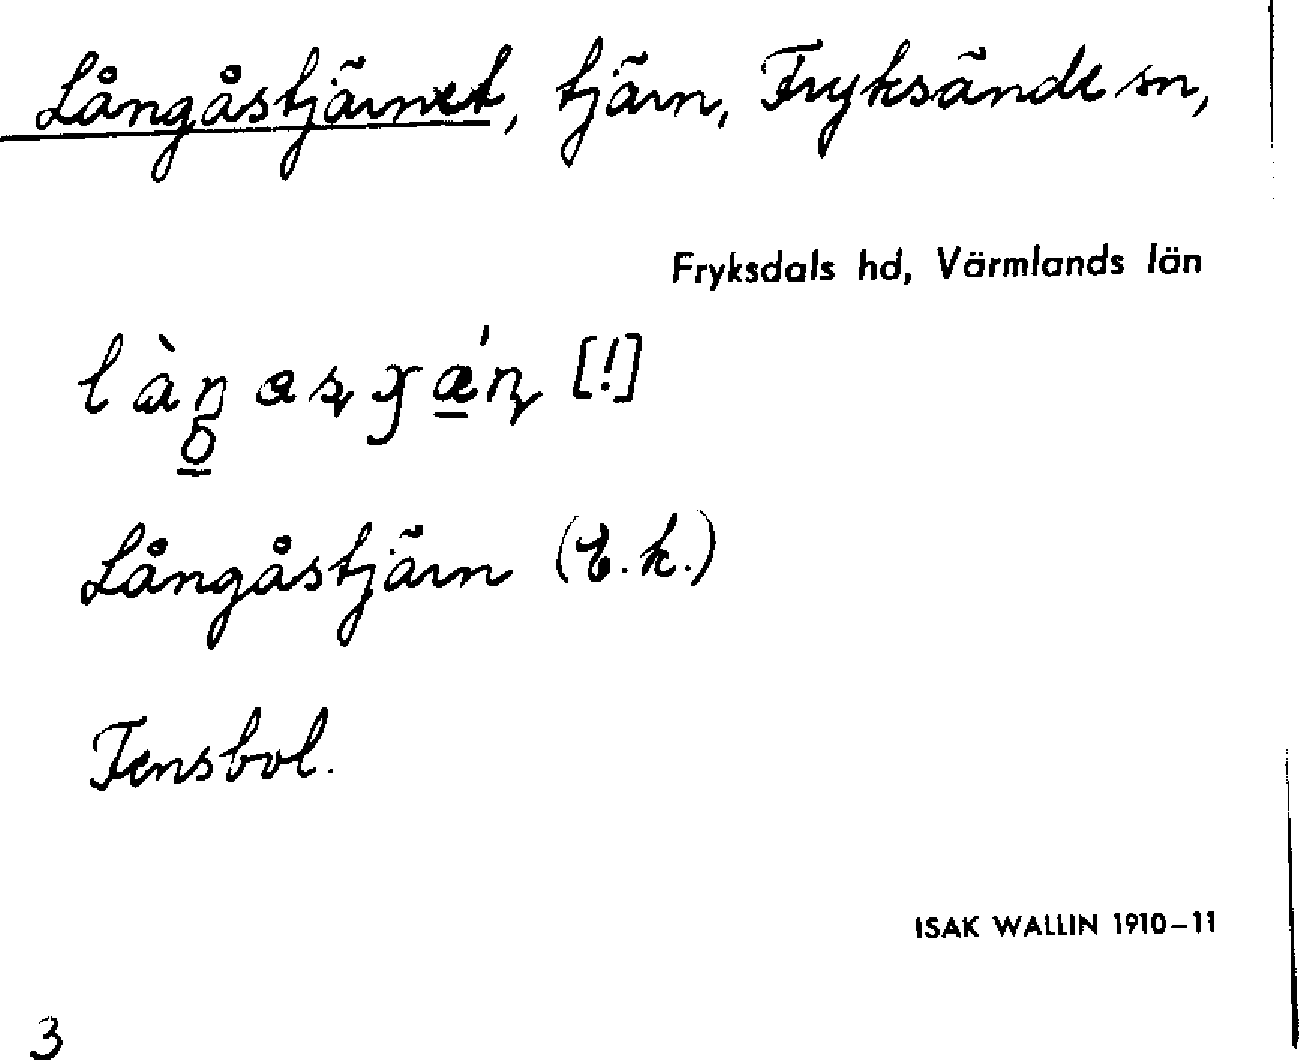 Långåstjärnet, tjärn, Fryksände sn,
Fryksdals hd, Värmlands län
[!]
Långåstjärn (E.k.)
Tensbol.
ISAK WALLIN 1910–11
3